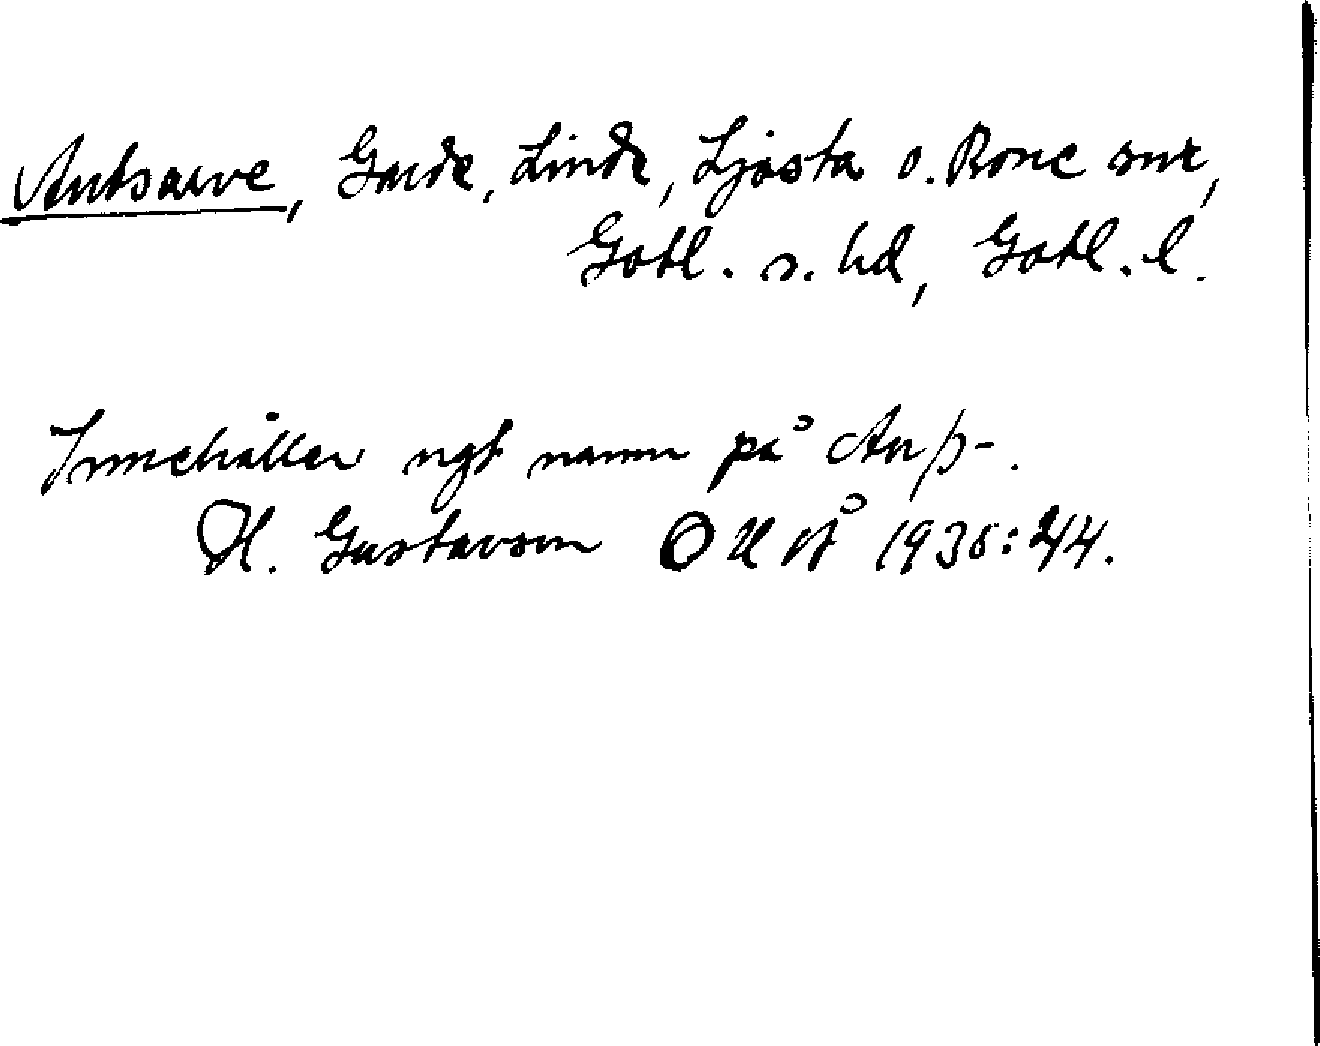 Autsarve, Garde, Linde, Ljåsta o. Rone snr,
Gotl. s. hd, Gotl. l.
Innehåller ngt namn på Auþ-.
H. Gustavson OUÅ 1938: 244.